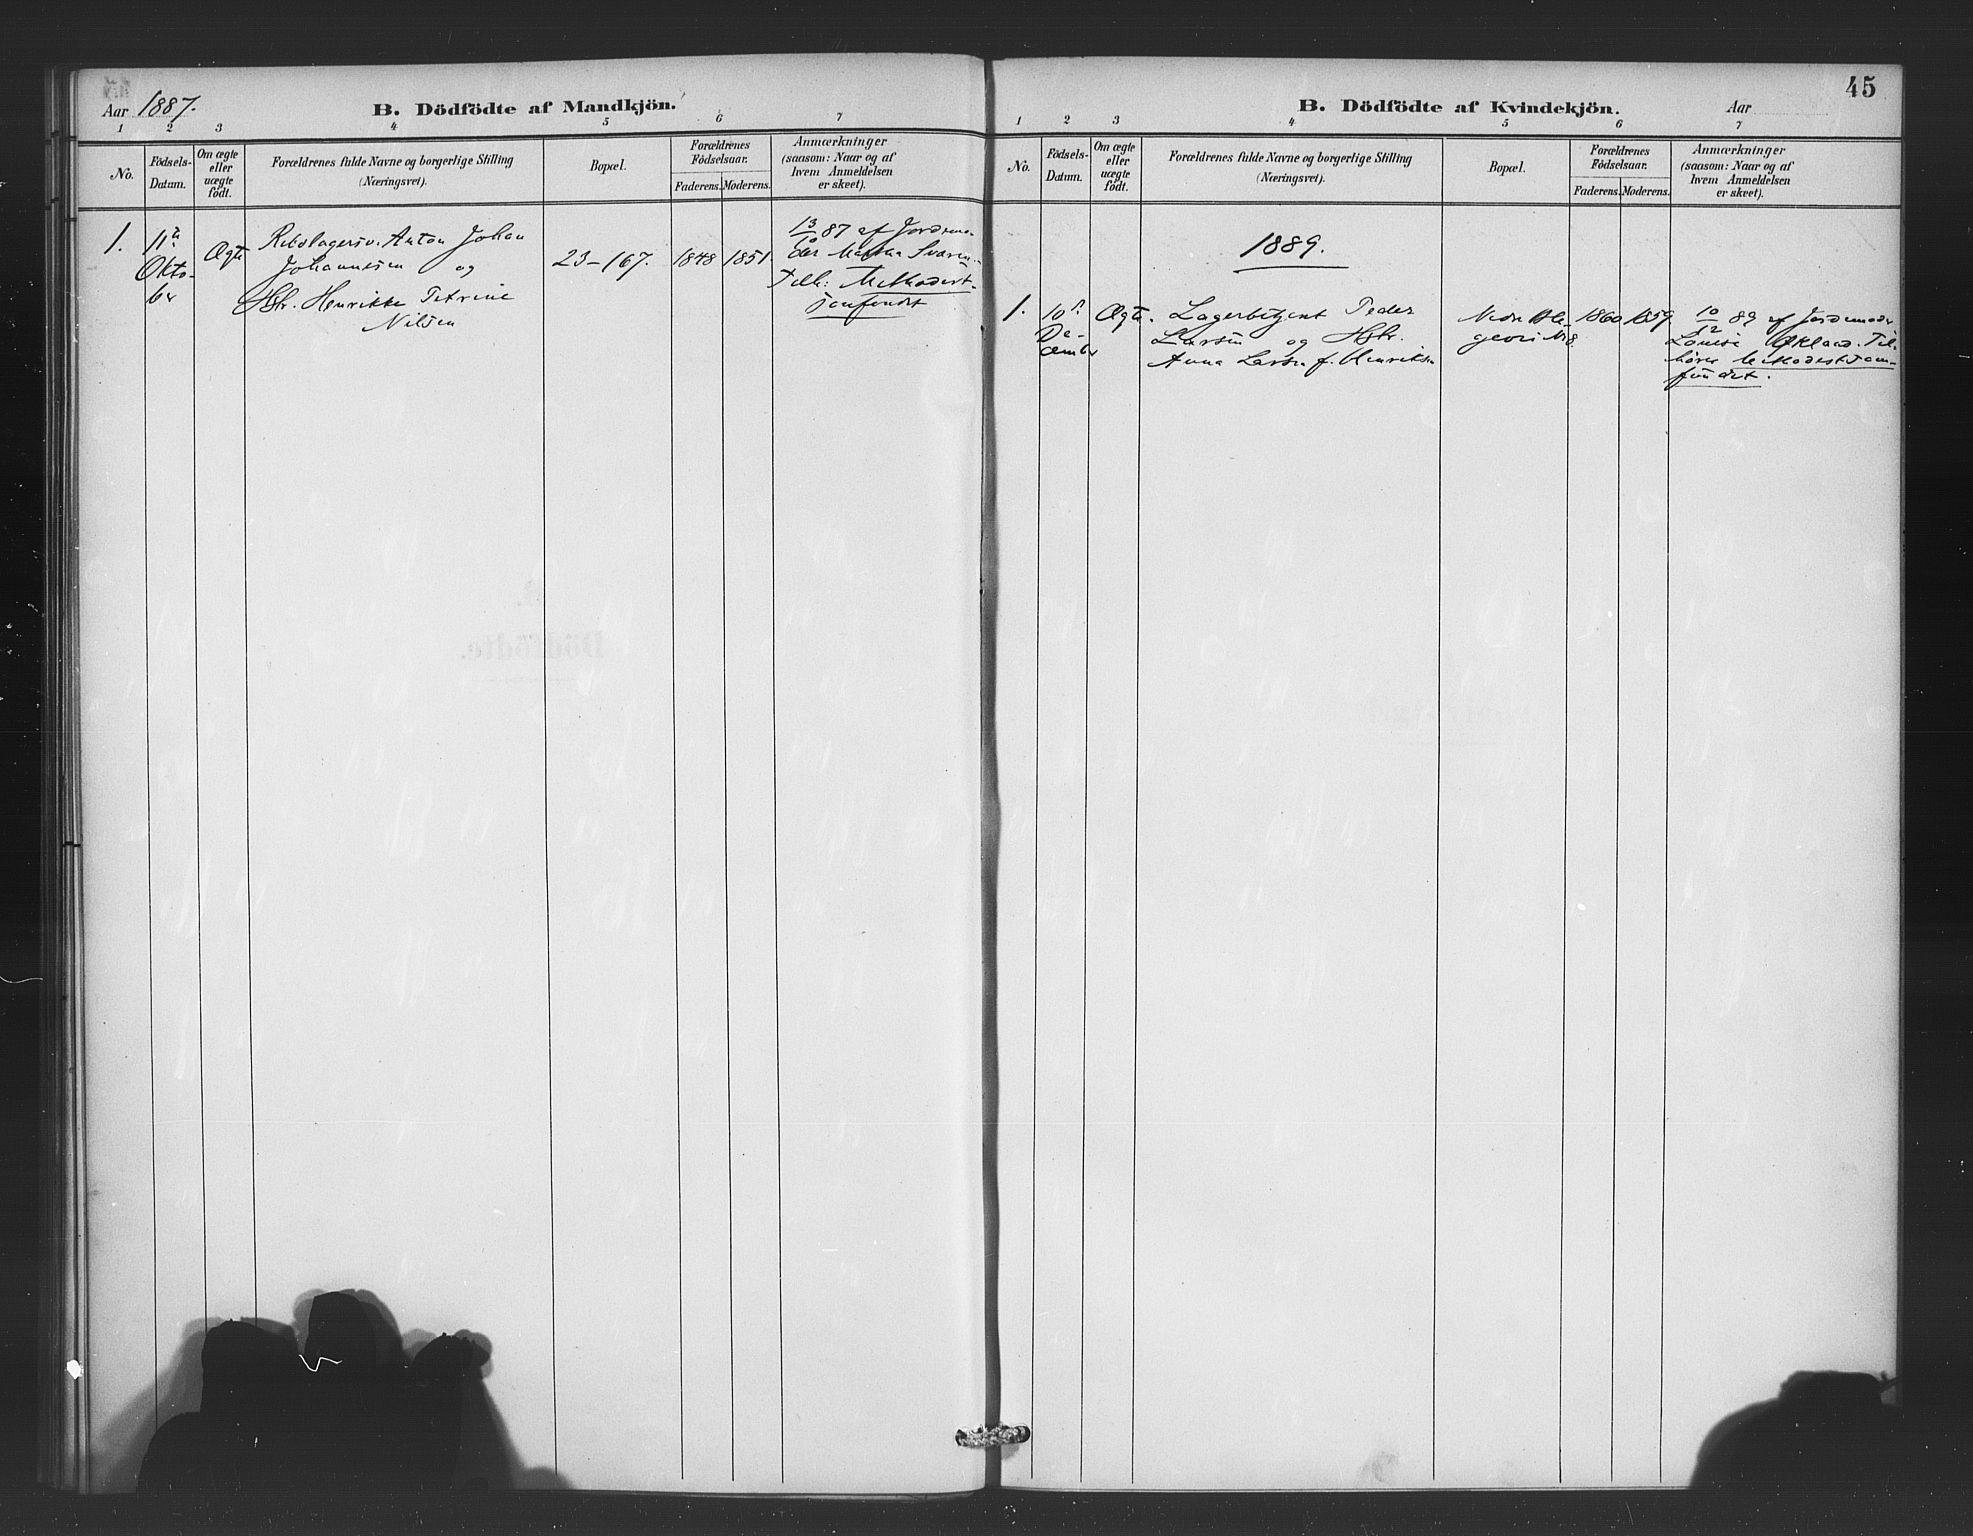 Aar 1887.
B. Dödfödte af Mandkjön.
1 2 3 4 5 6 7
No.
Födsels-
Datum.
Om ægte
eller
uægte
födt.
Forældrenes fulde Navne og borgerlige Stilling
(Næringsvei).
Bopæl.
Forældrenes
Födselsaar.
Faderens. Moderens.
Anmærkninger
(saasom: Naar og af
hvem Anmeldelsen
er skeet).
1.
11te
Okto-
ber
Ægte
Anton Johan
Johannesen og
Hstr. Henrikke Petrine
Nilsen
23-167.
1848 1851.
13/10 87 af Jordmo-
der
Tilh: Methodist-
samfundet
45
B. Dödfödte af Kvindekjön.
Aar
1 2 3 4 5 6 7
No.
Födsels-
Datum.
Om ægte
eller
uægte
födt.
Forældrenes fulde Navne og borgerlige Stilling
(Næringsvei).
Bopæl.
Forældrenes
Födselsaar.
Faderens. Moderens.
Anmærkninger
(saasom: Naar og af
hvem Anmeldelsen
er skeet).
1889.
1.
10de
De-
cember
Ægte.
Lagerbetjent Peder
Larsen og Hstr.
Anna Larsen f. Henriksen
Nedre
1860 1859
10/12 89 af Jordemoder
Louise Økland. Til-
hører Methodistsam-
fundet.